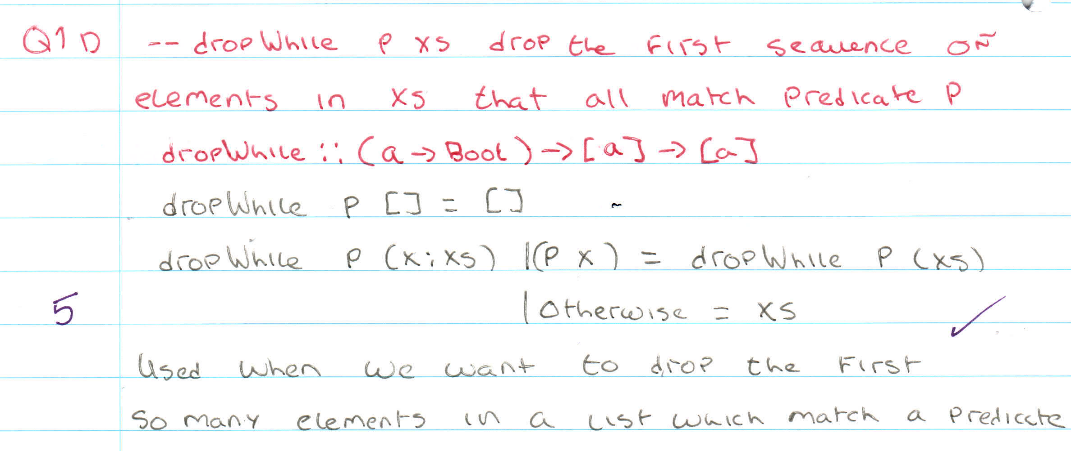 Q1D -- dropWhile p xs drop the first sequence of
elements in xs that all match predicate p
dropWhile :: (a -> Bool) -> [a] -> [a]
dropWhile p [] = []
dropWhile p (x:xs) |(p x) = dropWhile p (xs)
5 | otherwise = xs
Used when we want to drop the first
so many elements in a list which match a predicate